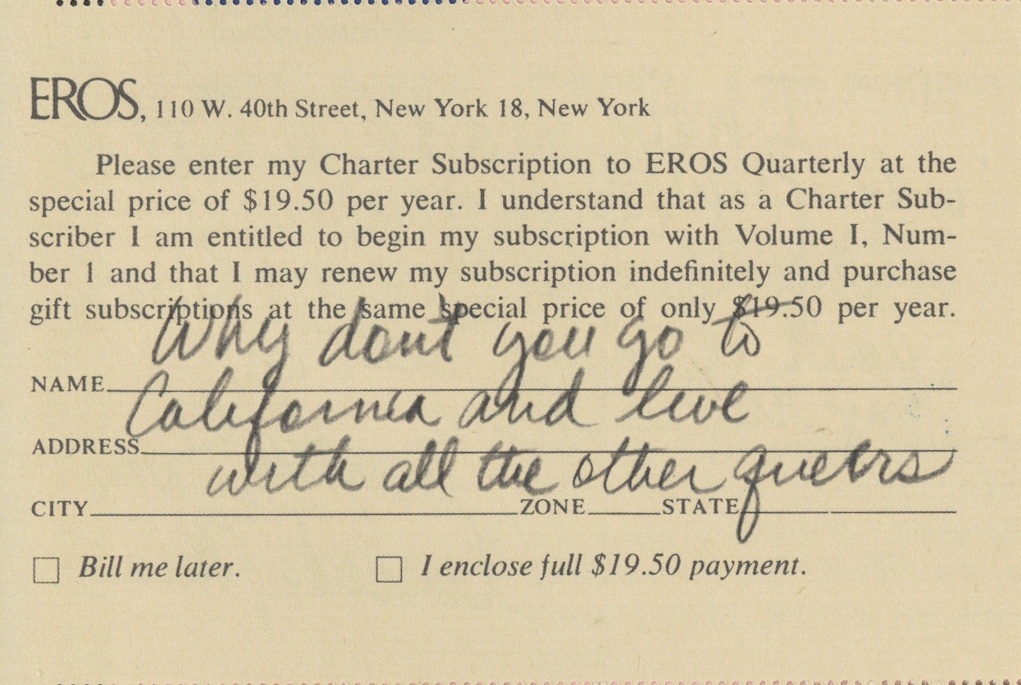 EROS, 110 W. 40th Street, New York 18, New York
Please enter my Charter Subscription to EROS Quarterly at the
special price of $19.50 per year. I understand that as a Charter Sub-
scriber I am entitled to begin my subscription with Volume I, Num-
ber 1 and that I may renew my subscription indefinitely and purchase
gift subscriptions at the same special price of only $19.50 per year.
Why don't you go to
NAME
California and live
ADDRESS
with all the other queers
CITY ZONE STATE
Bill me later. I enclose full $19.50 payment.